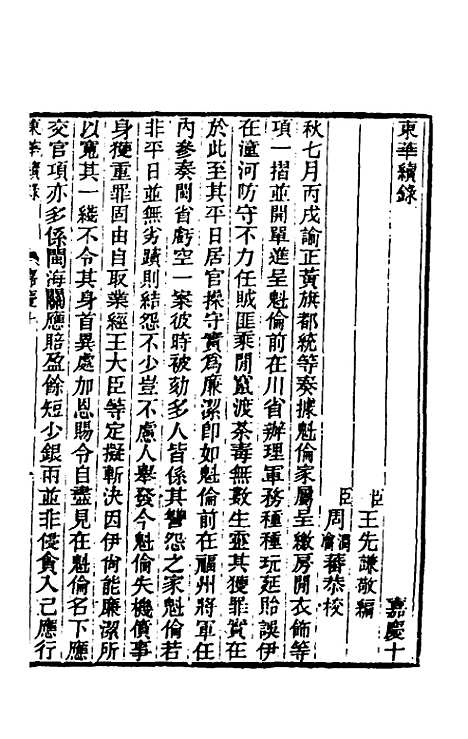 東華續錄
嘉慶十
臣王先謙敬編
臣周潤蕃恭校
秋七月丙戌諭正黃旗都統等奏據魁倫家屬呈繳房間衣飾等
項一摺並開單進呈魁倫前在川省辦理軍務種種玩延貽誤伊
在潼河防守不力任賊匪乘間竄渡荼毒無數生靈其獲罪實在
於此至其平日居官操守實為廉潔卽如魁倫前在福州將軍任
內參奏閩省虧空一案彼時被劾多人皆係其讐怨之家魁倫若
非平日並無劣蹟則結怨不少豈不慮人舉發今魁倫失機僨事
身獲重罪固由自取業經王大臣等定擬斬決因伊尙能廉潔所
以寬其一綫不令其身首異處加恩賜令自盡見在魁倫名下應
交官項亦多係閩海關應賠盈餘短少銀兩並非侵貪入己應行
東華續錄 嘉慶十 一